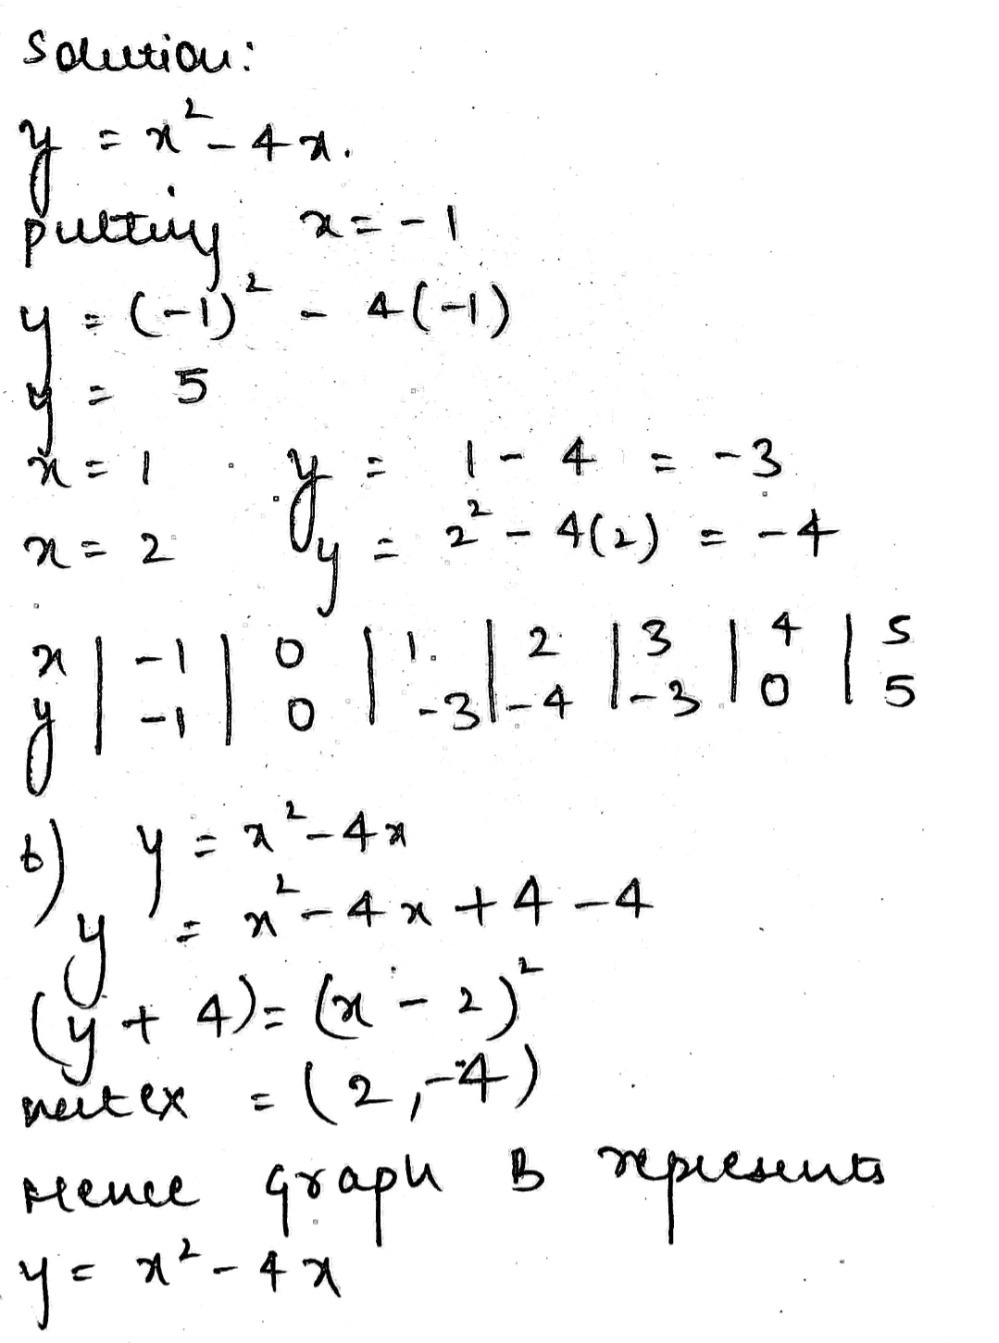 Solution:
y = x² - 4x.
putting x = -1
y = (-1)² - 4(-1)
y = 5
x = 1 y = 1 - 4 = -3
x = 2 y = 2² - 4(2) = -4
x | -1 | 0 | 1. | 2 | 3 | 4 | 5
y | -1 | 0 | -3 | -4 | -3 | 0 | 5
b) y = x² - 4x
y = x² - 4x + 4 - 4
(y + 4) = (x - 2)²
vertex = (2, -4)
Hence graph B represents
y = x² - 4x